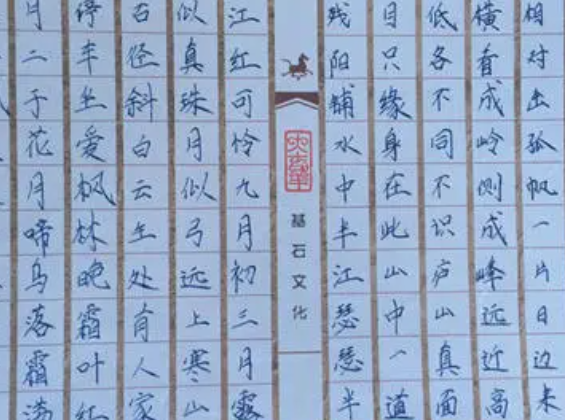 相对出孤帆一片日边来
横看成岭侧成峰远近高
低各不同不识庐山真面
目只缘身在此山中一道
残阳铺水中半江瑟瑟半
基石文化
江红可怜九月初三月露
似真珠月似弓远上寒山
石径斜白云生处有人家
停车坐爱枫林晚霜叶红
月二于花月啼乌落霜满